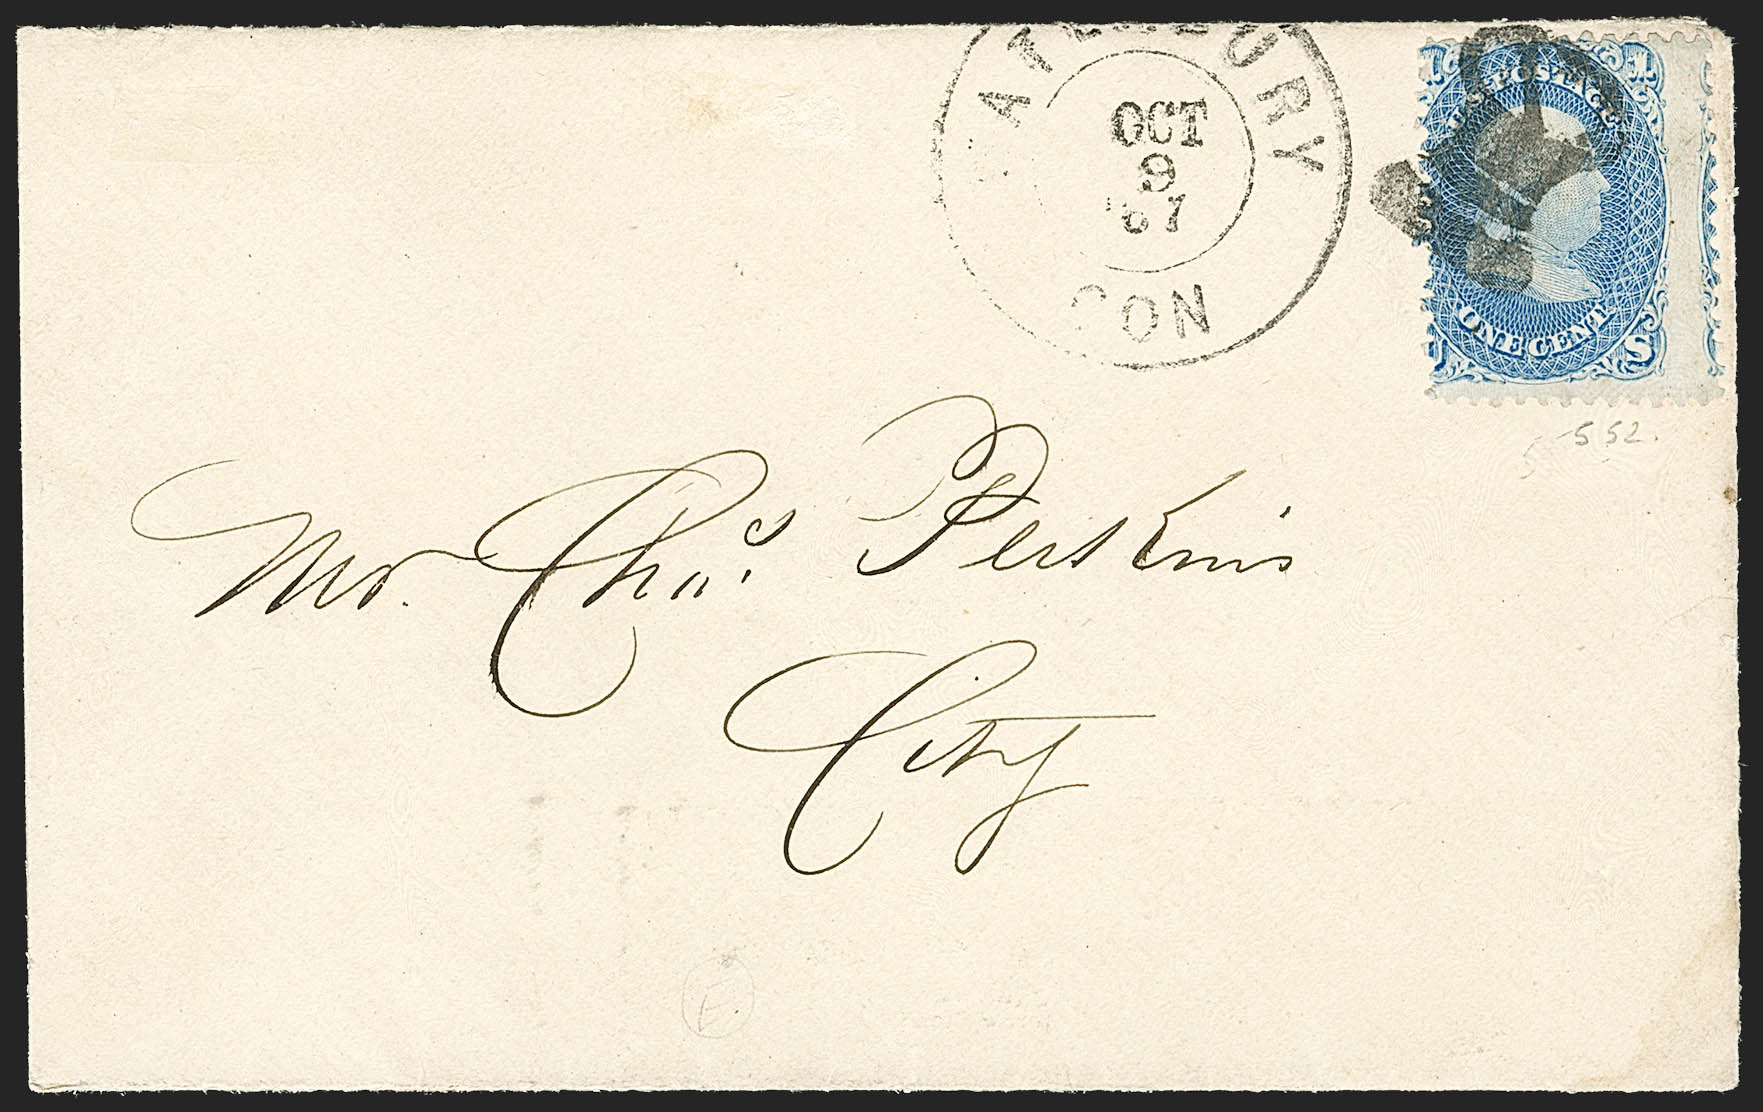 WATERBURY
OCT
9
'67
CON
U.S. POSTAGE
1 1
ONE CENT
U S
552.
Mr. Chas. Perkins
City
E